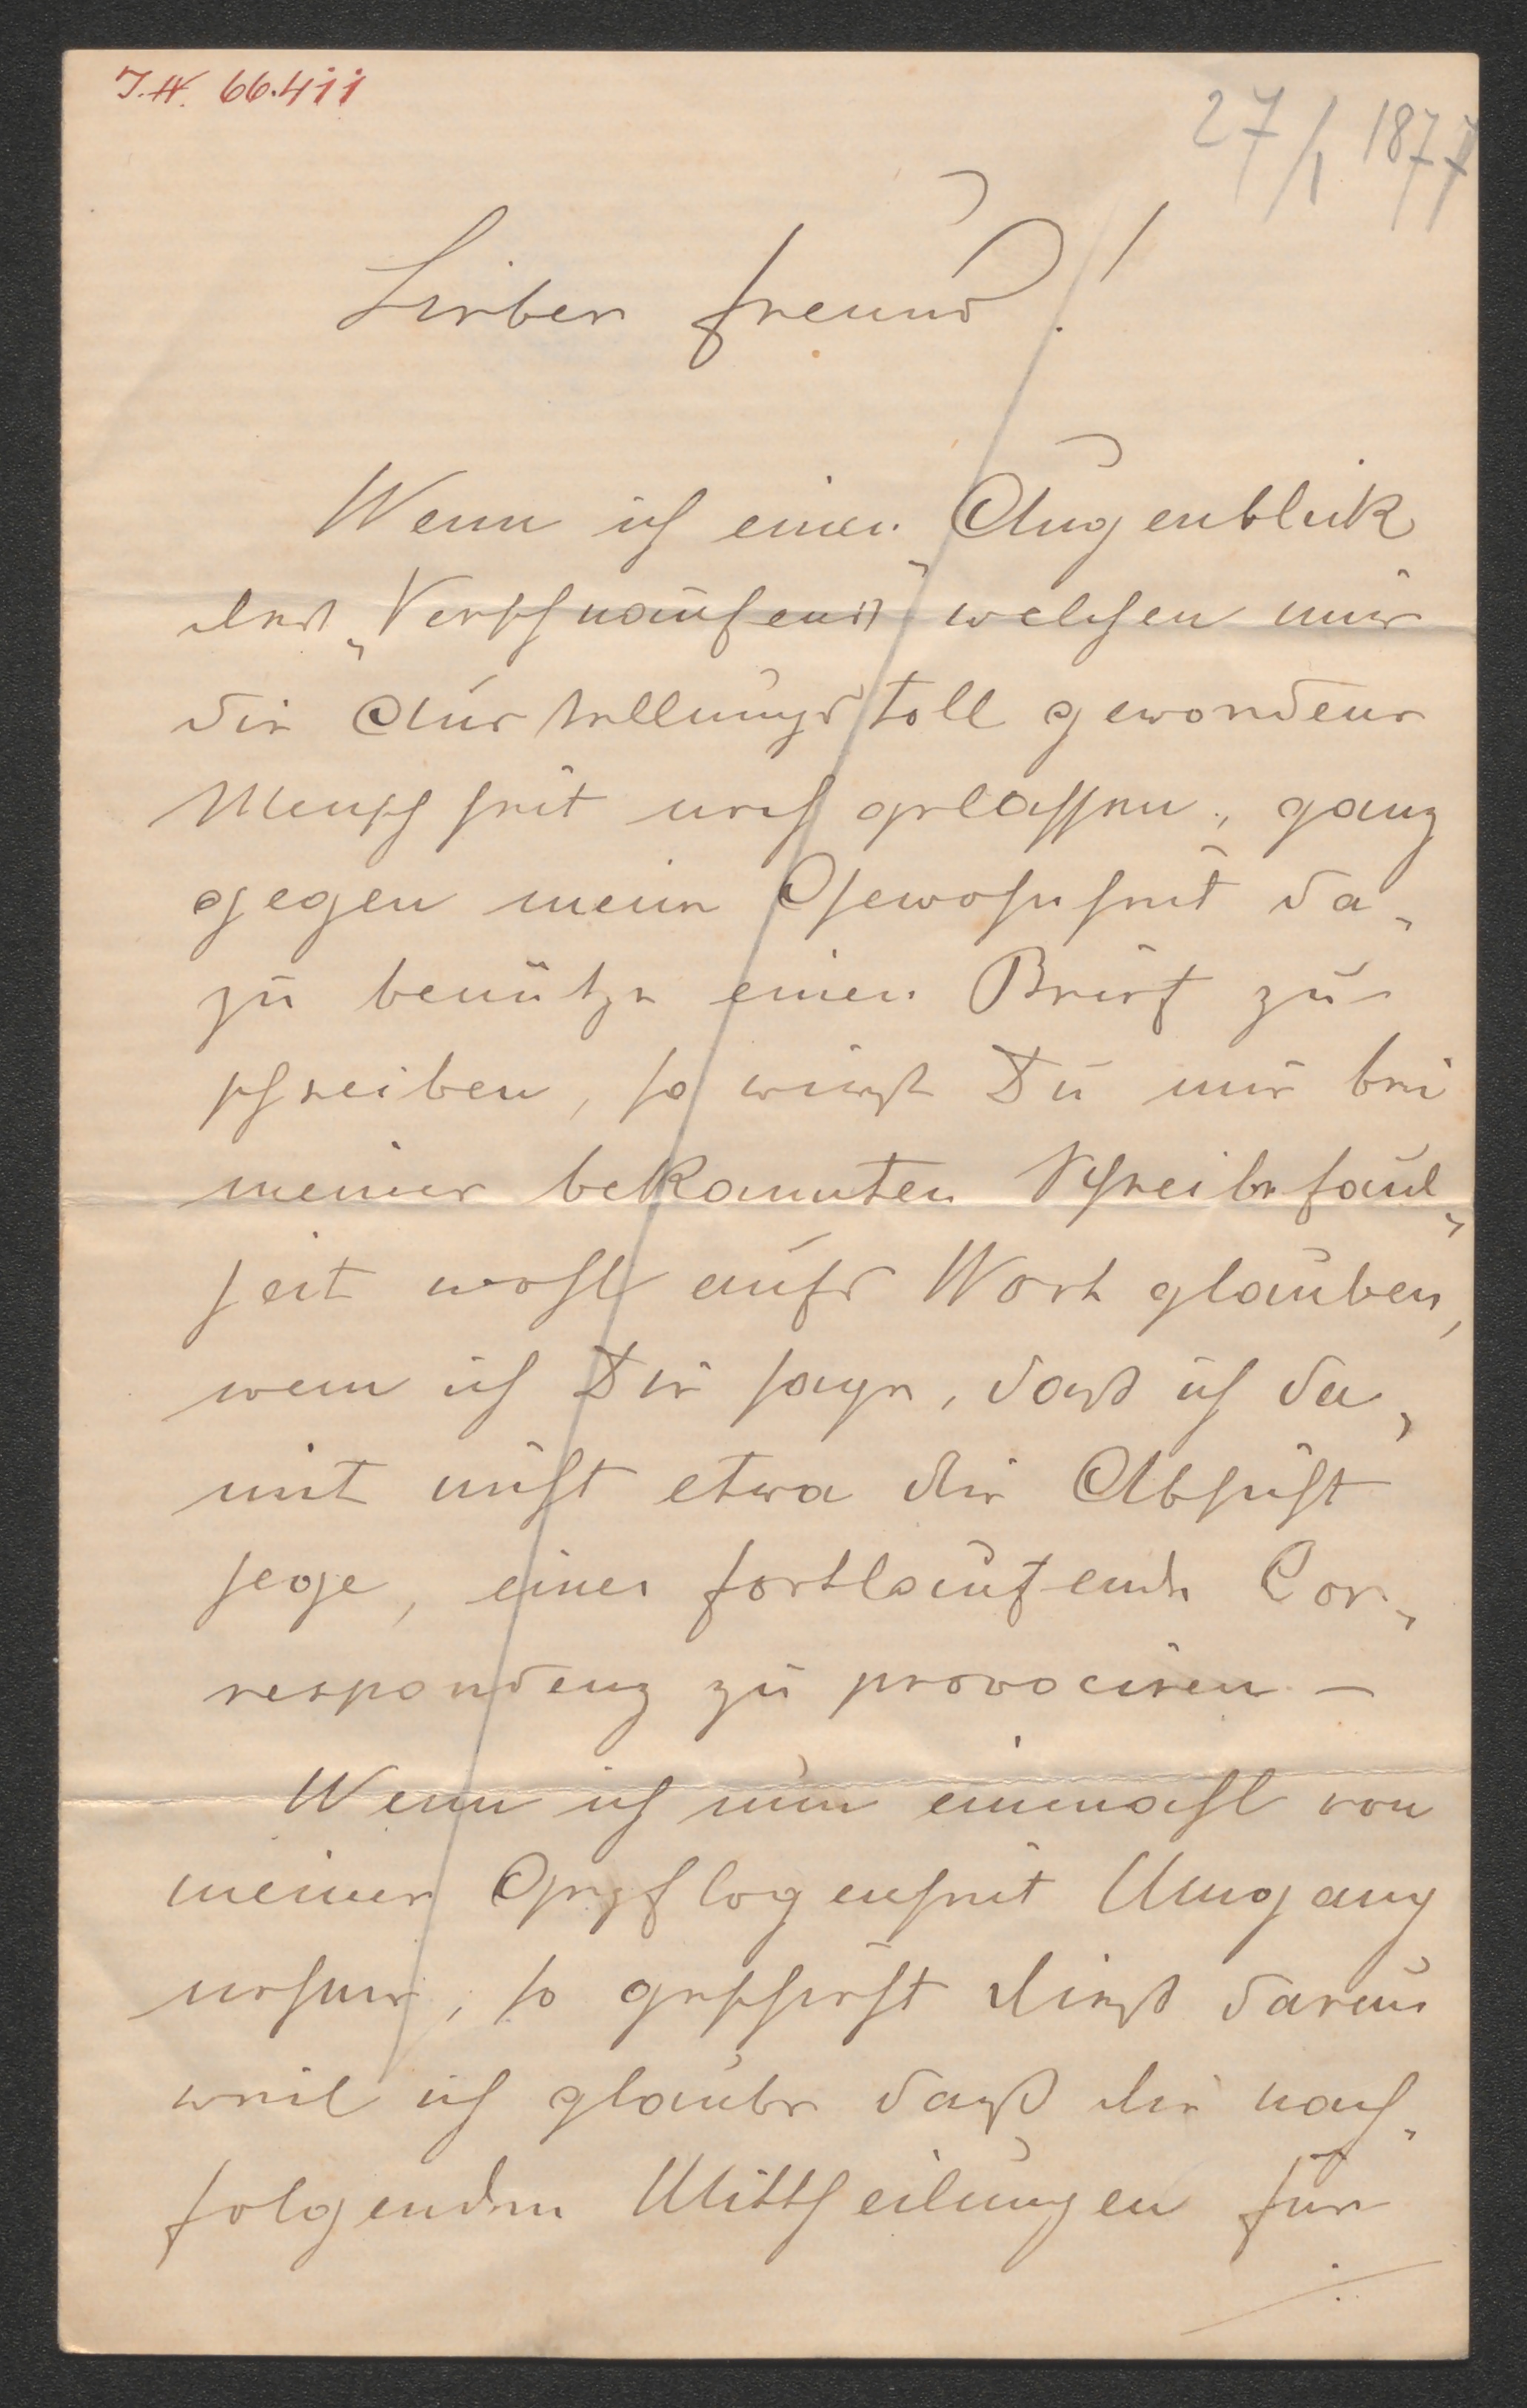 I.N. 66.411
27/1 1877
Lieber Freund!
Wenn ich einen Augenblick
des „Verschnaufens“ welchen mir
die Ausstellungstoll gewordene
Menschheit noch gelassen, ganz
gegen meine Gewohnheit da„
zu benütze einen Brief zu
schreiben, so wirst Du mir bei
meiner bekannten Schreibefaul„
heit wohl aufs Wort glauben,
wenn ich Dir sage, daß ich da„
mit nicht etwa die Absicht
hege, eine fortlaufende Cor„
respondenz zu provociren –
Wenn ich nun einmahl von
meiner Gepflogenheit Umgang
nehme, so geschieht dieß darum
weil ich glaube daß die nach„
folgenden Mittheilungen für
./.